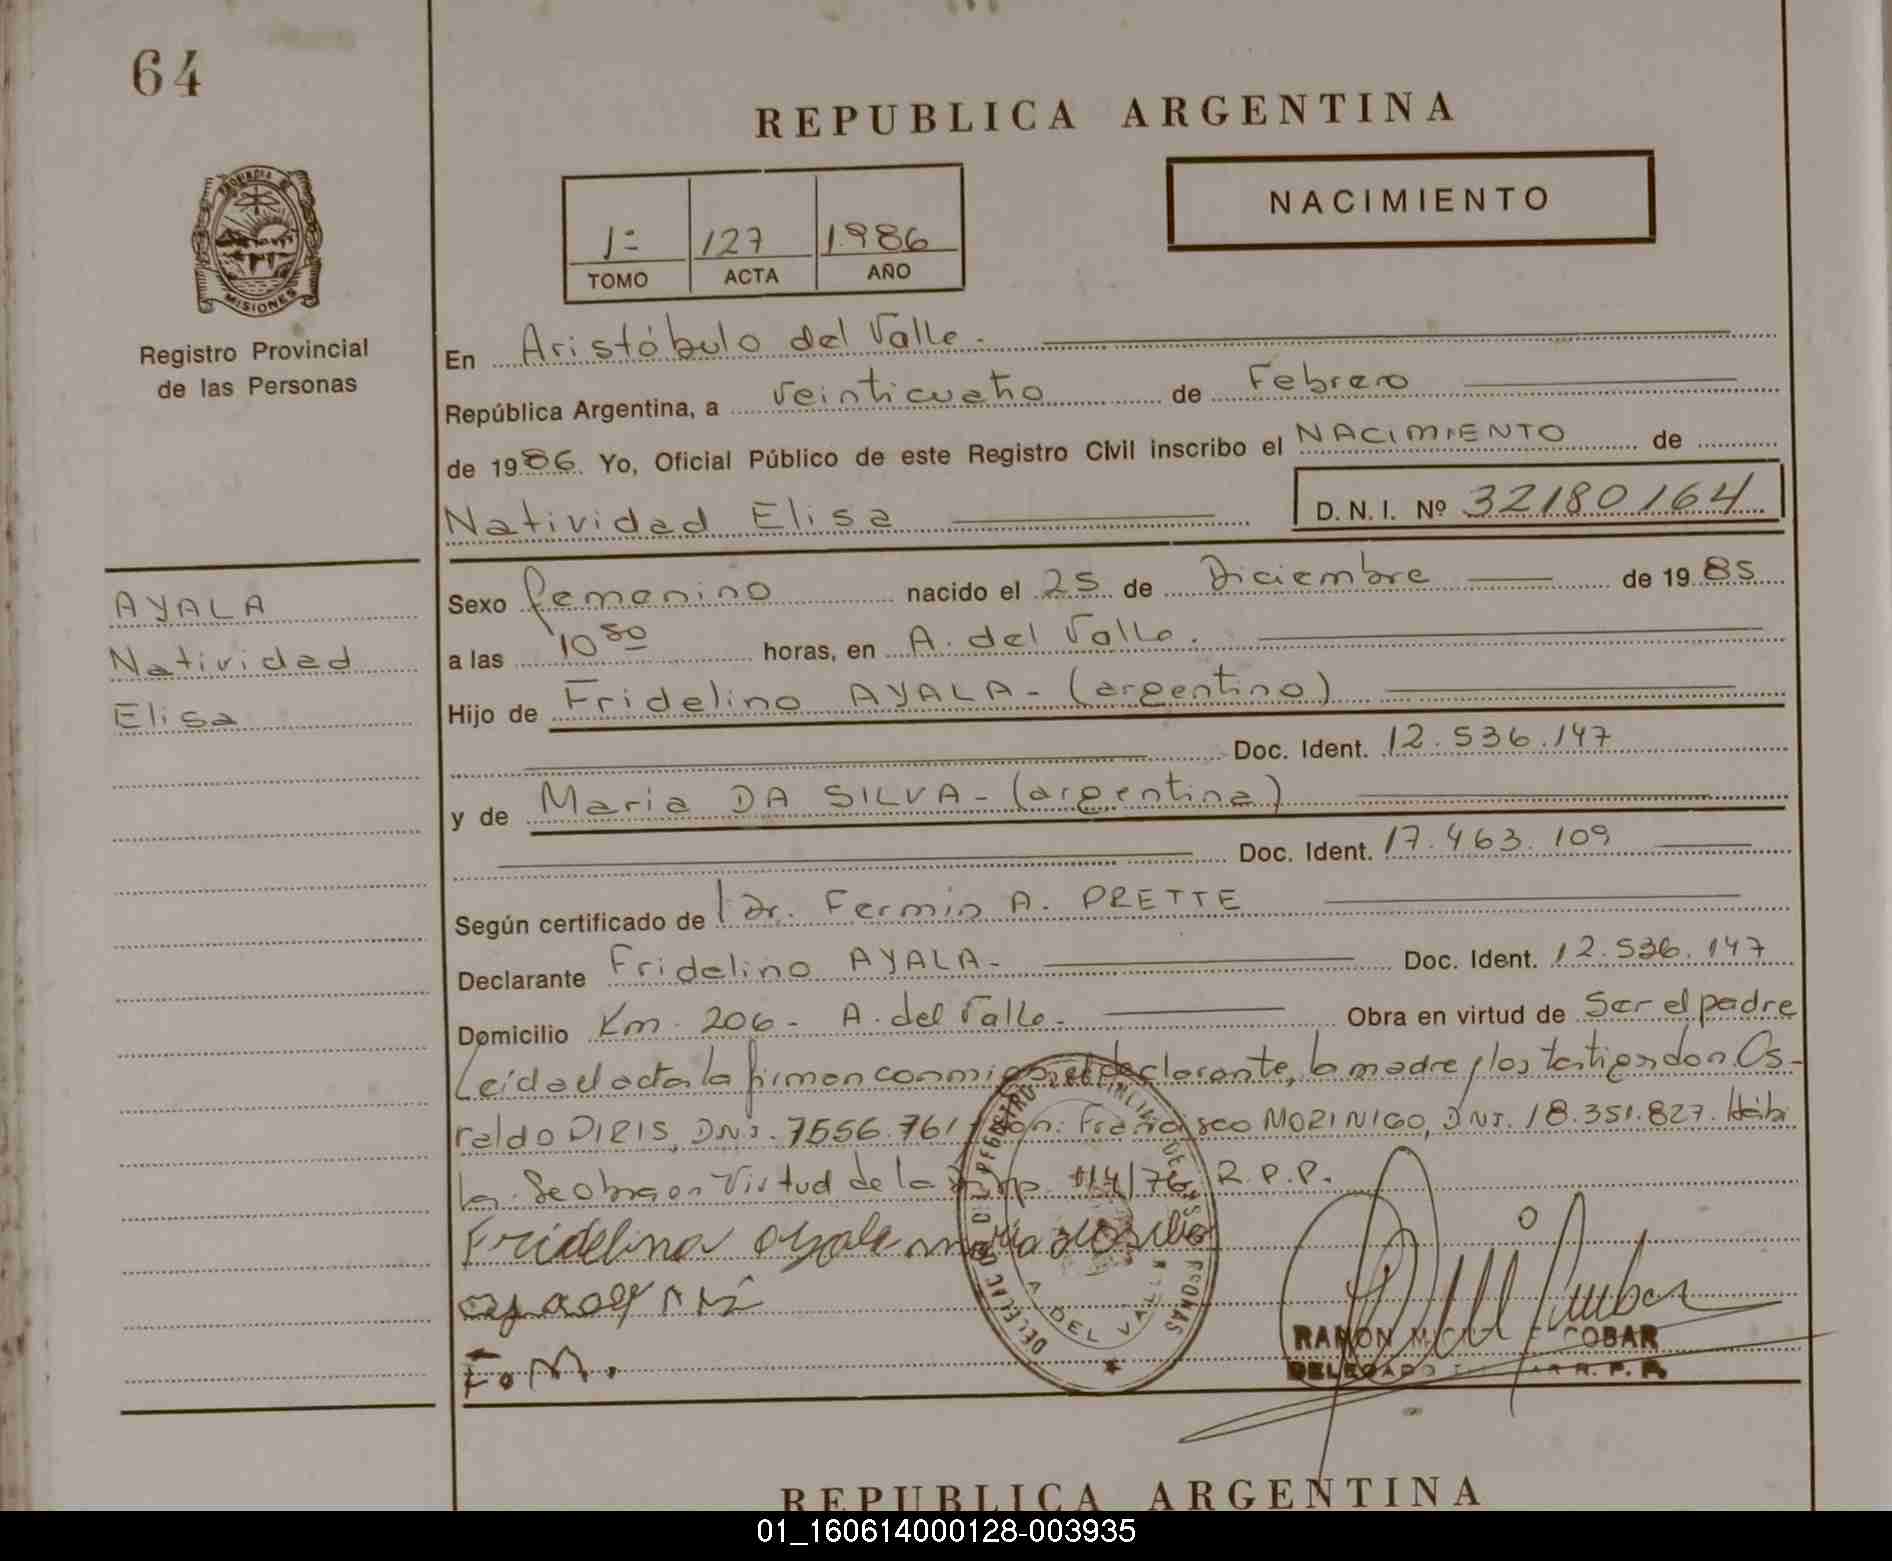 64
REPUBLICA ARGENTINA
NACIMIENTO
1º 127 1.986
TOMO ACTA AÑO
PROVINCIA DE
MISIONES
Registro Provincial
de las Personas
En Aristóbulo del Valle.
República Argentina, a veinticuatro de Febrero
de 1986. Yo, Oficial Público de este Registro Civil inscribo el NACIMIENTO de
Natividad Elisa D.N.I. Nº 32180164
AYALA
Natividad
Elisa
Sexo femenino nacido el 25 de Diciembre de 1985
a las 10 horas, en A. del Valle.
Hijo de Fridelino AYALA - (argentino)
Doc. Ident. 12.536.147
y de Maria DA SILVA - (argentina)
Doc. Ident. 17.463.109
Según certificado de Dr. Fermin A. PRETTE
Declarante Fridelino AYALA - Doc. Ident. 12.536.147
Domicilio Km. 206 - A. del Valle - Obra en virtud de Ser el padre
Leída el acta la firman conmigo, el declarante, la madre y los testigos don Os-
valdo PIRIS, DNI. 7556.761 don: Francisco MORINIGO, DNI. 18.351.827. Hábi
les. Se obra en Virtud de la Disp. 114/76 R.P.P.
Fridelino ayala maria
F.M.
DELEG REGISTRO PROVINCIAL DE LAS PERSONAS
A. DEL VALLE
RAMON MIGUEL ESCOBAR
DELEGADO R.P.P.
REPUBLICA ARGENTINA
01_160614000128-003935